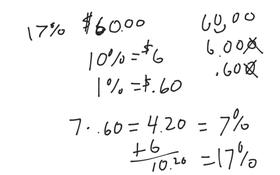 17% $60.00
60.00
10% = $6
6.000
1% = $.60
.600
7 · .60 = 4.20 = 7%
+6
10.20 = 17%